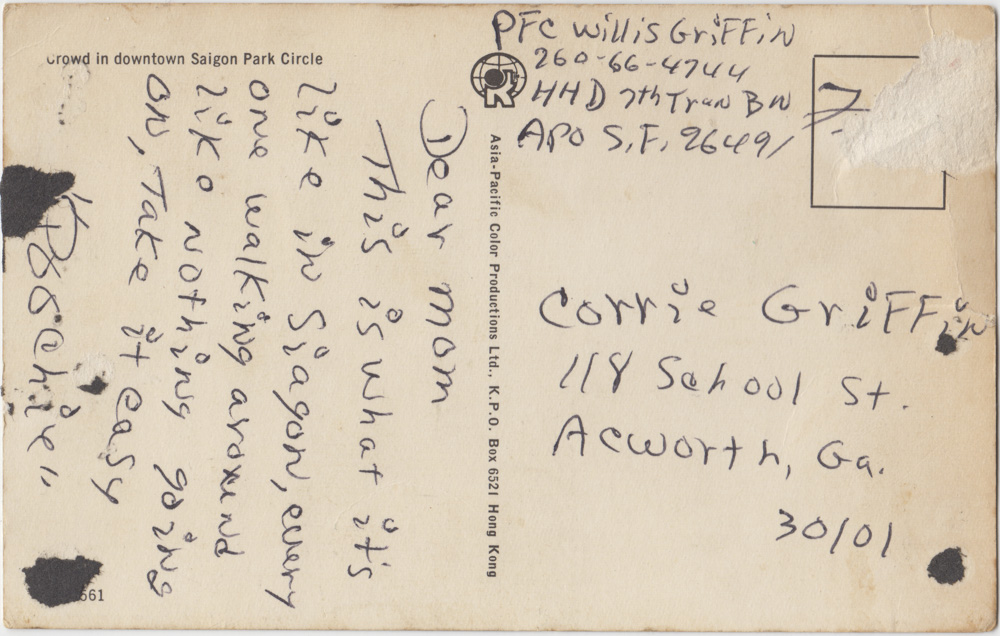 Crowd in downtown Saigon Park Circle
Dear mom
This is what it's
like in Siagon, every
one walking around
like nothing going
on, Take it easy
PFC Willis Griffin
260-66-4744
HHD 7th Tran BN
APO S.F. 96491
Asia-Pacific Color Productions Ltd., K.P.O. Box 6521 Hong Kong
Corrie Griffin
118 School St.
Acworth, Ga.
30101
561